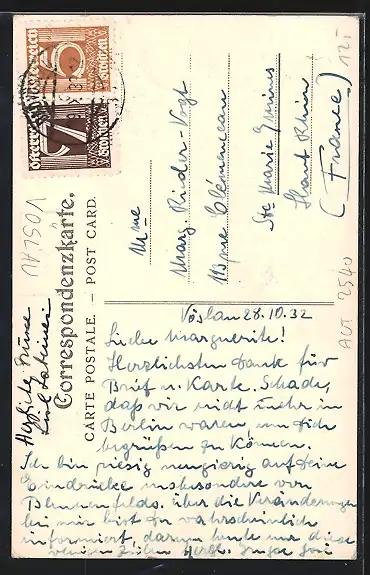 Österreich
5
Groschen
Österreich
7
Groschen
12.-
VÖSLAU
Correspondenzkarte.
CARTE POSTALE. — POST CARD.
Mme
Marg. Rieder-Vogt
Clémenceau
Ste Marie Mines
Haut Rhin
(France)
2540
Vöslau 28.10.32
Liebe Marguerite!
Herzlichsten Dank für
Brief u. Karte. Schade,
daß wir nicht mehr in
Berlin waren, um Dich
begrüßen zu können.
Ich bin riesig neugierig auf Deine
Eindrücke insbesondere von
Blumenfelds. über die Veränderungen
bei mir bist Du wahrscheinlich
informiert, darum heute nur diese
wenigen Zeilen. Herzl.
Herzliche Grüsse